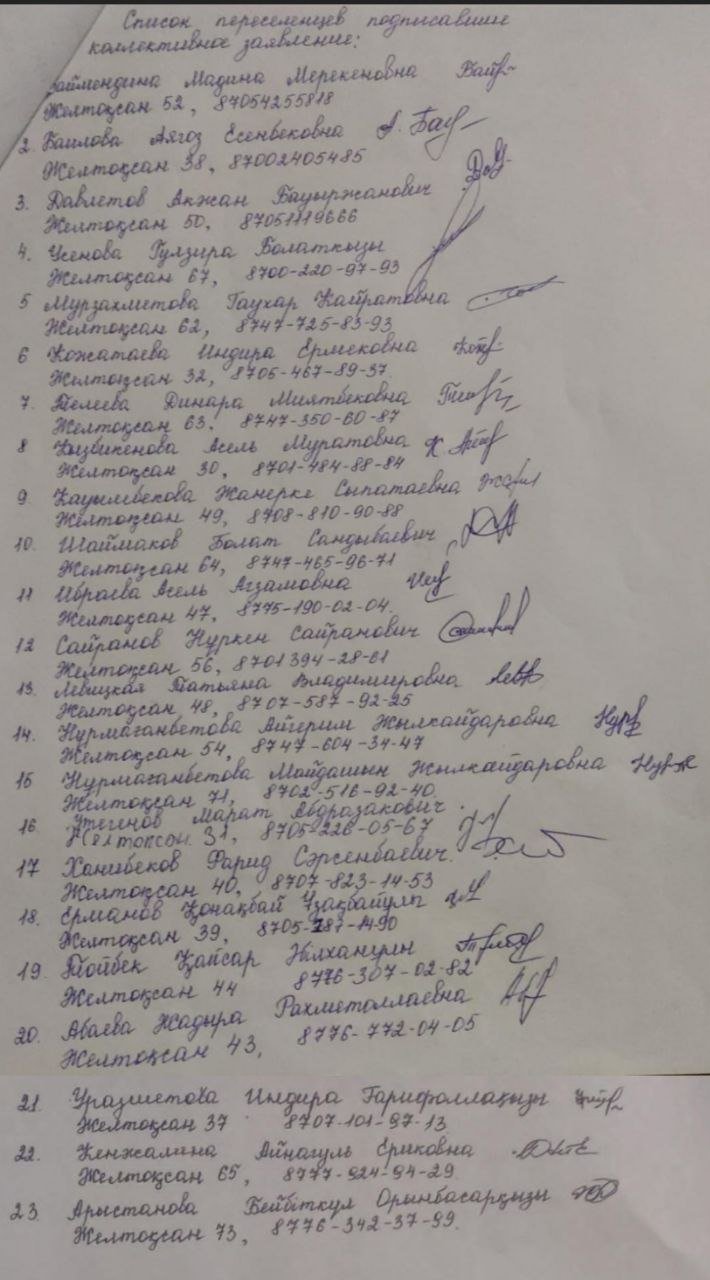 Список переселенцев подписавшие
коллективное заявление:
аймендина Мадина Мерекеновна
Желтоқсан 52, 87054255818
2. Баилова Аягоз Есенбековна А. Бау
Желтоқсан 38, 87002405485
3. Давлетов Акжан Бауыржанович
Желтоқсан 50, 87051119666
4. Усенова Гулзира Болаткызы
Желтоқсан 67, 8700-220-97-93
5 Мурзахметова Гаухар Кайратовна
Желтоқсан 62, 8747-725-83-93
6 Кожатаева Индира Ермековна
Желтоқсан 32, 8705-467-89-37
7. Телеева Динара Миятбековна
Желтоқсан 63, 8747-350-60-87
8 Кызбикенова Асель Муратовна
Желтоқсан 30, 8701-484-88-84
9 Кауымбекова Жанерке Сыпатаевна
Желтоқсан 49, 8708-810-90-88
10. Шаймаков Болат Сандыбаевич
Желтоқсан 64, 8747-465-96-71
11 Ибраева Асель Агзамовна
Желтоқсан 47, 8775-190-02-04.
12 Сайранов Нуркен Сайранович
Желтоқсан 56, 8701 394-28-61
13. Левицкая Татьяна Владимировна
Желтоқсан 48, 8707-587-92-25
14. Нурмаганбетова Айгерим Жылкайдаровна
Желтоқсан 54, 8747-604-34-47
15 Нурмаганбетова Майдашын Жылкайдаровна
Желтоқсан 71, 8702-516-92-40.
16. Утегенов Марат Абдразакович
Желтоқсан 31, 8705-226-05-67
17 Ханибеков Фарид Сәрсенбаевич.
Желтоқсан 40, 8707-823-14-53
18. Ерманов Қонақбай Ұзақбайұлы
Желтоқсан 39, 8705-287-1490
19. Тойбек Қайсар
Желтоқсан 44 8776-307-02-82
20. Абаева Жадыра Рахметоллаевна
Желтоқсан 43, 8776-772-04-05
21. Уразметова Индира Гарифоллақызы
Желтоқсан 37 8707-101-97-13
22. Кенжалина Айнагуль Ериковна
Желтоқсан 65, 8777-924-94-29
23. Арыстанова Бейбіткүл Орынбасарқызы
Желтоқсан 73, 8776-342-37-99.